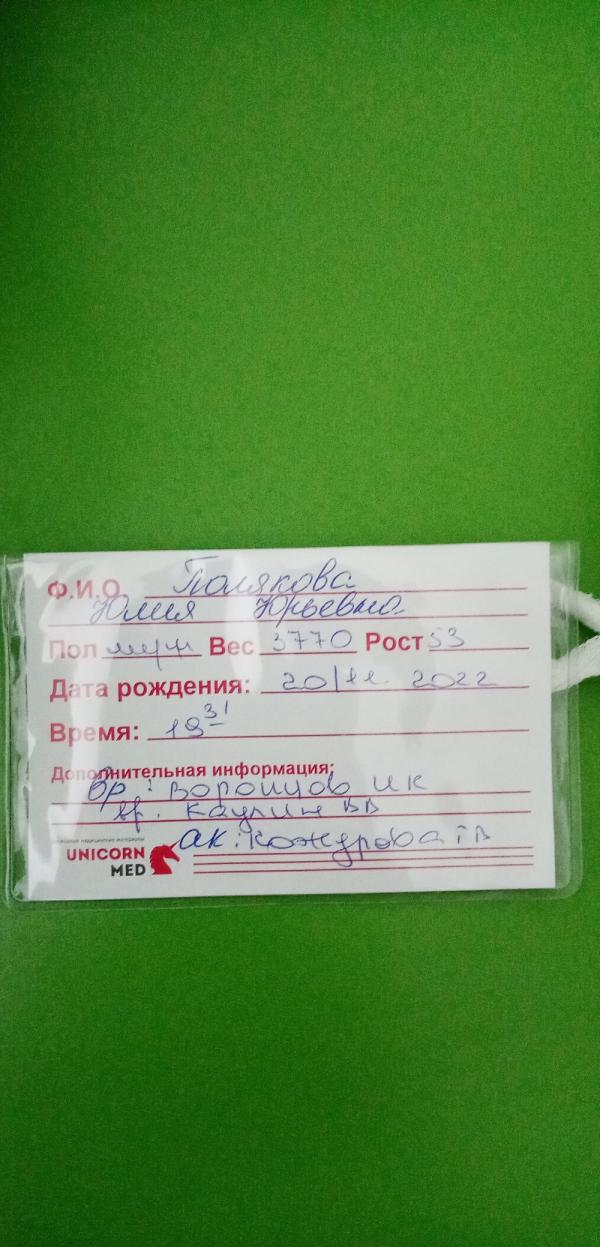 Ф.И.О. Полякова
Юлия Юрьевна
Пол муж Вес 3770 Рост 53
Дата рождения: 20/11 2022
Время: 19 31
Дополнительная информация:
Вр: Воронцов ИК
вр. Каулин ВВ
ак: Кожурова ТВ
UNICORN
MED